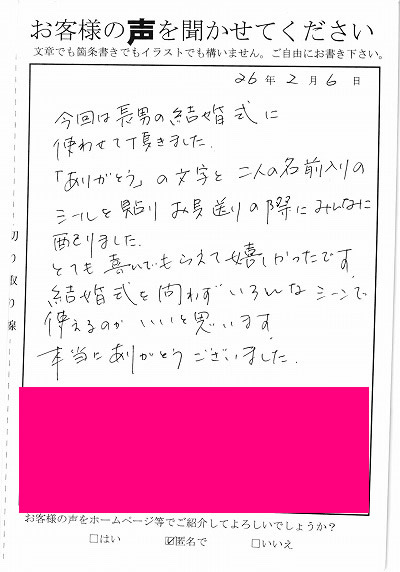 お客様の声を聞かせてください
文章でも箇条書きでもイラストでも構いません。ご自由にお書き下さい。
26年2月6日
今回は長男の結婚式に
使わせて頂きました.
「ありがとう」の文字と二人の名前入りの
シールを貼りお見送りの際にみんなに
配りました.
とても喜んでもらえて嬉しかったです.
結婚式を問わずいろんなシーンで
使えるのがいいと思います.
本当にありがとうございました.
切り取り線
お客様の声をホームページ等でご紹介してよろしいでしょうか？
□はい ☑匿名で □いいえ